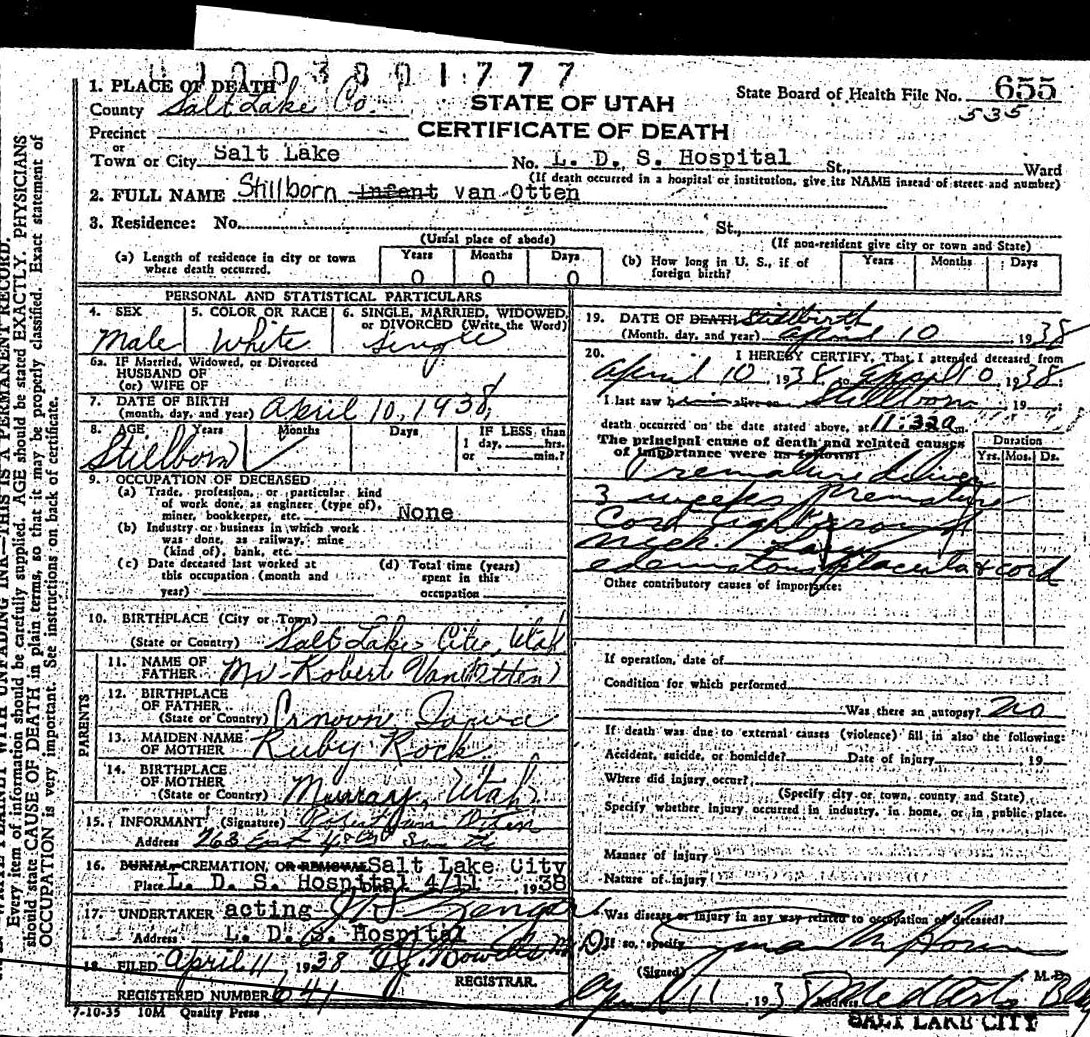 1003801777
1. PLACE OF DEATH
County Salt Lake Co.
STATE OF UTAH
CERTIFICATE OF DEATH
State Board of Health File No. 655
535
Precinct
or
Town or City Salt Lake No. L. D. S. Hospital St., Ward
(If death occurred in a hospital or institution, give its NAME instead of street and number)
2. FULL NAME Stillborn Infant van Otten
3. Residence: No. St.,
(Usual place of abode) (If non-resident give city or town and State)
(a) Length of residence in city or town where death occurred. Years 0 Months 0 Days 0
(b) How long in U. S., if of foreign birth? Years Months Days
PERSONAL AND STATISTICAL PARTICULARS
4. SEX Male
5. COLOR OR RACE White
6. SINGLE, MARRIED, WIDOWED, or DIVORCED (Write the Word) Single
6a. IF Married, Widowed, or Divorced
HUSBAND OF
(or) WIFE OF
7. DATE OF BIRTH
(month, day, and year) April 10, 1938
8. AGE Years Months Days IF LESS than 1 day, hrs. or min.?
Stillborn
9. OCCUPATION OF DECEASED
(a) Trade, profession, or particular kind
of work done, as engineer (type of),
miner, bookkeeper, etc. None
(b) Industry or business in which work
was done, as railway, mine
(kind of), bank, etc.
(c) Date deceased last worked at
this occupation (month and
year)
(d) Total time (years)
spent in this
occupation
10. BIRTHPLACE (City or Town)
(State or Country) Salt Lake City, Utah
PARENTS
11. NAME OF
FATHER Mr. Robert Van Otten
12. BIRTHPLACE
OF FATHER
(State or Country) Iowa
13. MAIDEN NAME
OF MOTHER Ruby Rock
14. BIRTHPLACE
OF MOTHER
(State or Country) Murray, Utah
15. INFORMANT (Signature) Robert van Otten
Address 763 East
16. BURIAL, CREMATION, OR REMOVAL Salt Lake City
Place L. D. S. Hospital Date 4/11 1938
17. UNDERTAKER acting
Address L. D. S. Hospital
18. FILED April 11 1938
REGISTRAR.
REGISTERED NUMBER 641
7-10-35 10M Quality Press
19. DATE OF DEATH Stillbirth
(Month, day, and year) April 10 1938
20. I HEREBY CERTIFY, That I attended deceased from
April 10, 1938, to April 10, 1938;
I last saw him alive on Stillborn 19
death occurred on the date stated above, at 11:32 a m.
The principal cause of death and related causes
of importance were as follows:
Duration
Yrs. Mos. Ds.
Premature
3 weeks premature
Cord tight around
neck. Large
edematous placenta & cord
Other contributory causes of importance:
If operation, date of
Condition for which performed
Was there an autopsy? no
If death was due to external causes (violence) fill in also the following:
Accident, suicide, or homicide? Date of injury 19
Where did injury occur?
(Specify city or town, county and State)
Specify whether injury occurred in industry, in home, or in public place.
Manner of injury
Nature of injury
Was disease or injury in any way related to occupation of deceased?
If so, specify
(Signed) M. D.
April 11, 1938 Address
SALT LAKE CITY
Every item of information should be carefully supplied. AGE should be stated EXACTLY. PHYSICIANS
should state CAUSE OF DEATH in plain terms, so that it may be properly classified. Exact statement of
OCCUPATION is very important. See instructions on back of certificate.